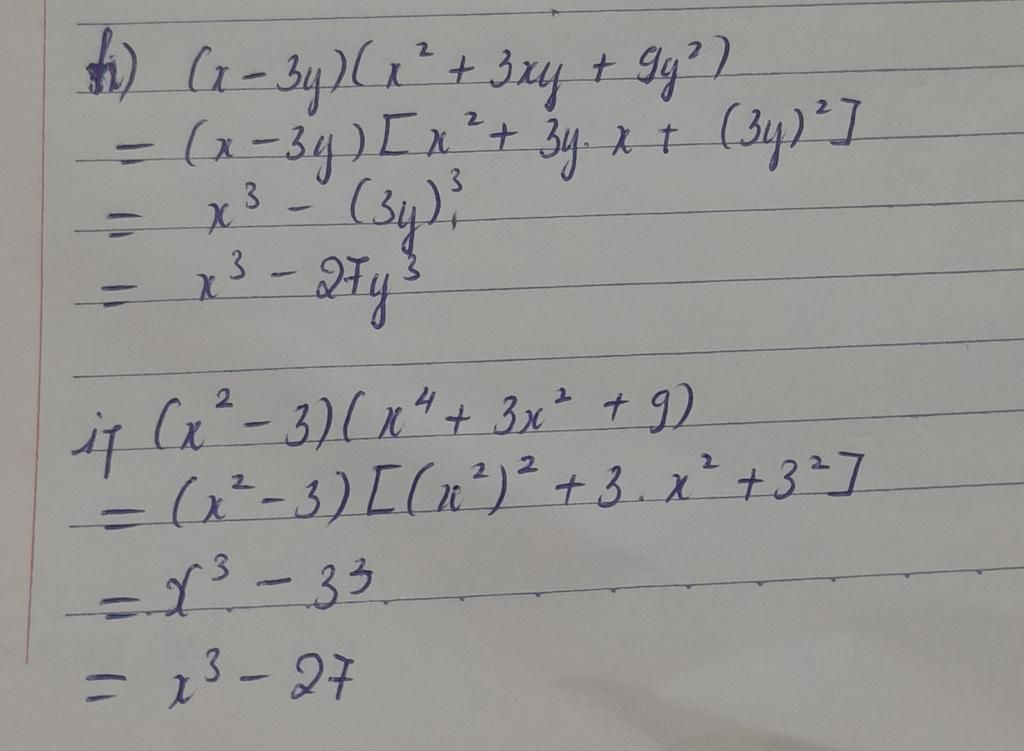 h) (x - 3y)(x² + 3xy + 9y²)
= (x - 3y)[x² + 3y. x + (3y)²]
= x³ - (3y)³.
= x³ - 27y³
i) (x² - 3)(x⁴ + 3x² + 9)
= (x² - 3)[(x²)² + 3 . x² + 3²]
= x³ - 3³
= x³ - 27